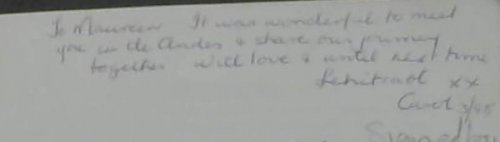 To Maureen It was wonderful to meet
you in the Andes & share our journey
together with love & until next time
xx
Carol
Signed by